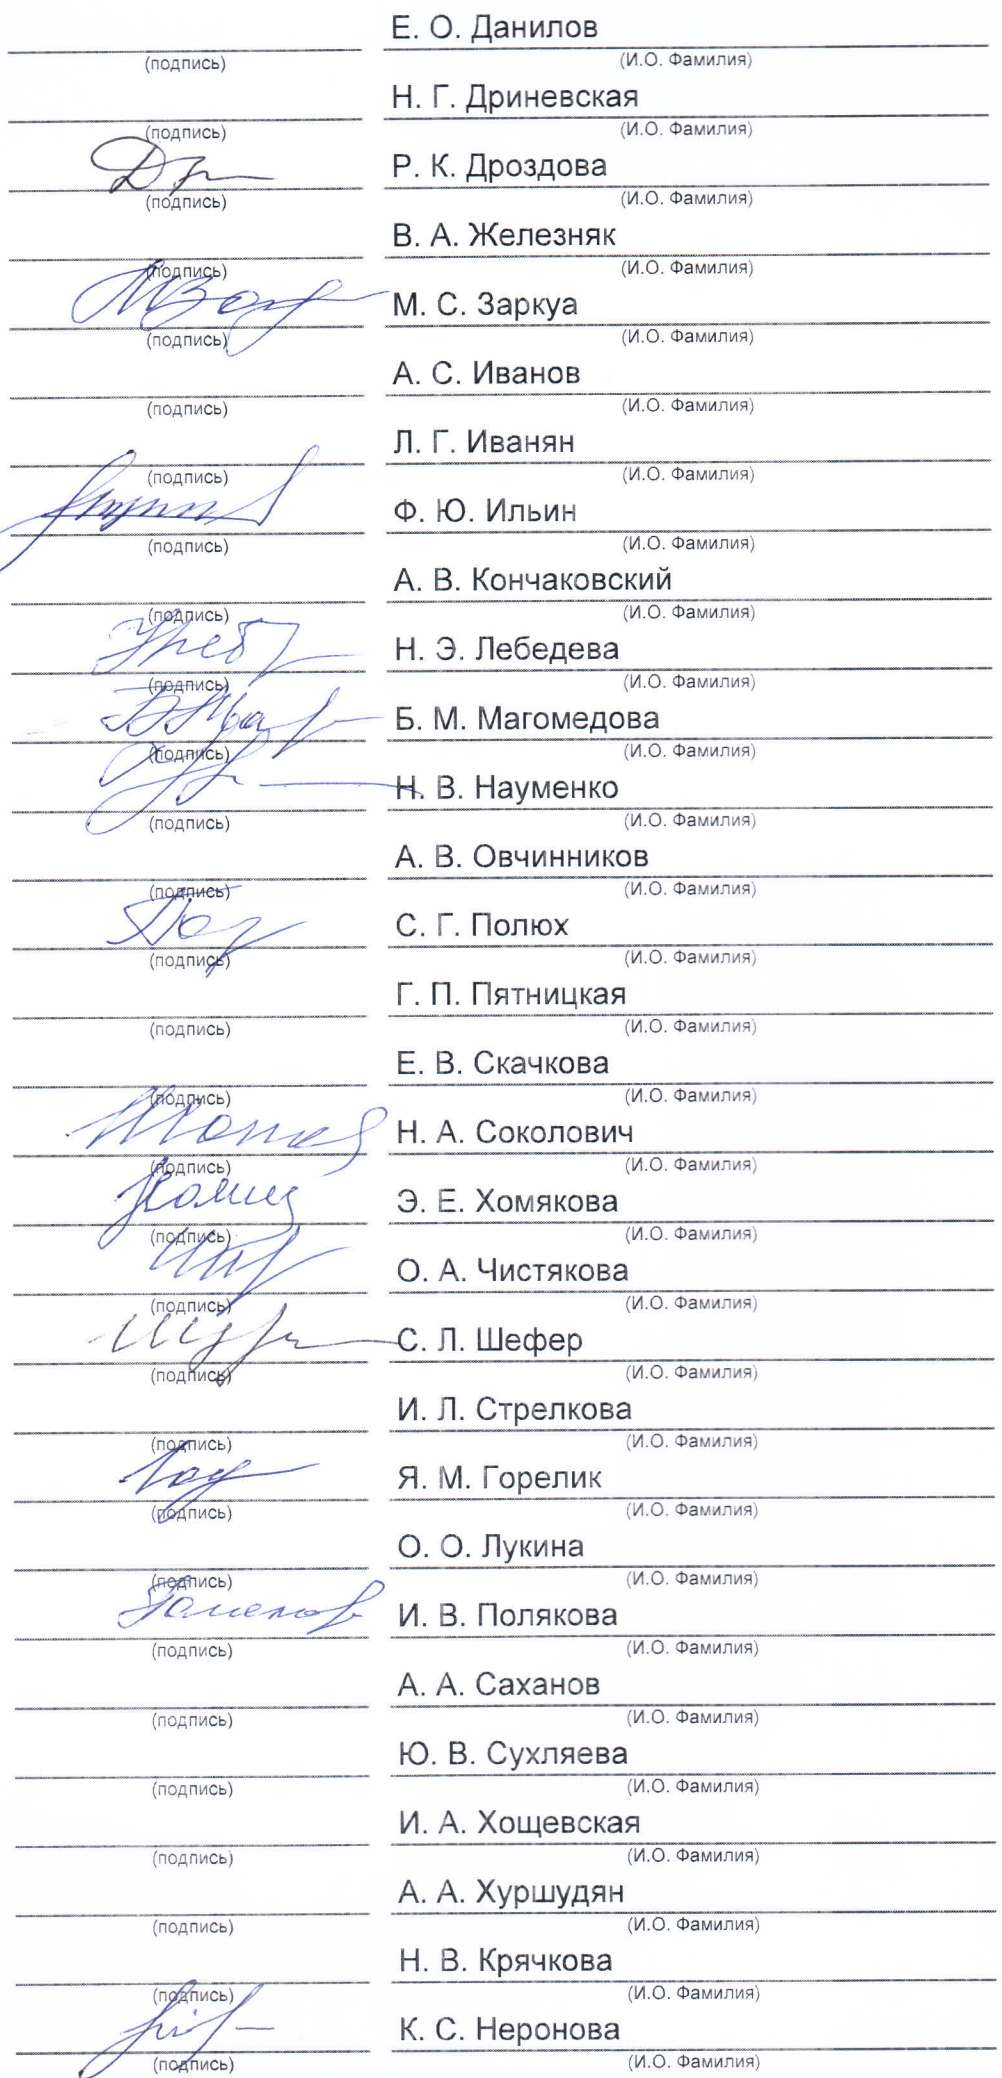 Е. О. Данилов
(подпись) (И.О. Фамилия)
Н. Г. Дриневская
(подпись) (И.О. Фамилия)
Р. К. Дроздова
(подпись) (И.О. Фамилия)
В. А. Железняк
(подпись) (И.О. Фамилия)
М. С. Заркуа
(подпись) (И.О. Фамилия)
А. С. Иванов
(подпись) (И.О. Фамилия)
Л. Г. Иванян
(подпись) (И.О. Фамилия)
Ф. Ю. Ильин
(подпись) (И.О. Фамилия)
А. В. Кончаковский
(подпись) (И.О. Фамилия)
Н. Э. Лебедева
(подпись) (И.О. Фамилия)
Б. М. Магомедова
(подпись) (И.О. Фамилия)
Н. В. Науменко
(подпись) (И.О. Фамилия)
А. В. Овчинников
(подпись) (И.О. Фамилия)
С. Г. Полюх
(подпись) (И.О. Фамилия)
Г. П. Пятницкая
(подпись) (И.О. Фамилия)
Е. В. Скачкова
(подпись) (И.О. Фамилия)
Н. А. Соколович
(подпись) (И.О. Фамилия)
Э. Е. Хомякова
(подпись) (И.О. Фамилия)
О. А. Чистякова
(подпись) (И.О. Фамилия)
С. Л. Шефер
(подпись) (И.О. Фамилия)
И. Л. Стрелкова
(подпись) (И.О. Фамилия)
Я. М. Горелик
(подпись) (И.О. Фамилия)
О. О. Лукина
(подпись) (И.О. Фамилия)
И. В. Полякова
(подпись) (И.О. Фамилия)
А. А. Саханов
(подпись) (И.О. Фамилия)
Ю. В. Сухляева
(подпись) (И.О. Фамилия)
И. А. Хощевская
(подпись) (И.О. Фамилия)
А. А. Хуршудян
(подпись) (И.О. Фамилия)
Н. В. Крячкова
(подпись) (И.О. Фамилия)
К. С. Неронова
(подпись) (И.О. Фамилия)